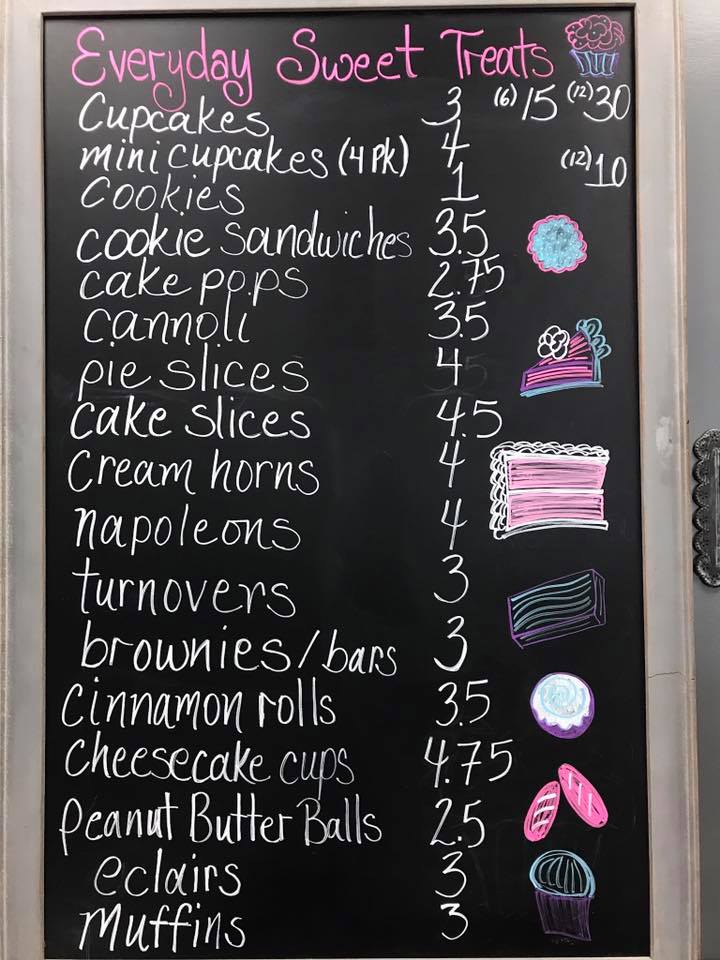 Everyday Sweet Treats
Cupcakes 3 (6) 15 (12) 30
mini cupcakes (4 pk) 4
Cookies 1 (12) 10
cookie sandwiches 3.5
cake pops 2.75
cannoli 3.5
pie slices 4
cake slices 4.5
cream horns 4
napoleons 4
turnovers 3
brownies/bars 3
Cinnamon rolls 3.5
Cheesecake cups 4.75
Peanut Butter Balls 2.5
eclairs 3
Muffins 3